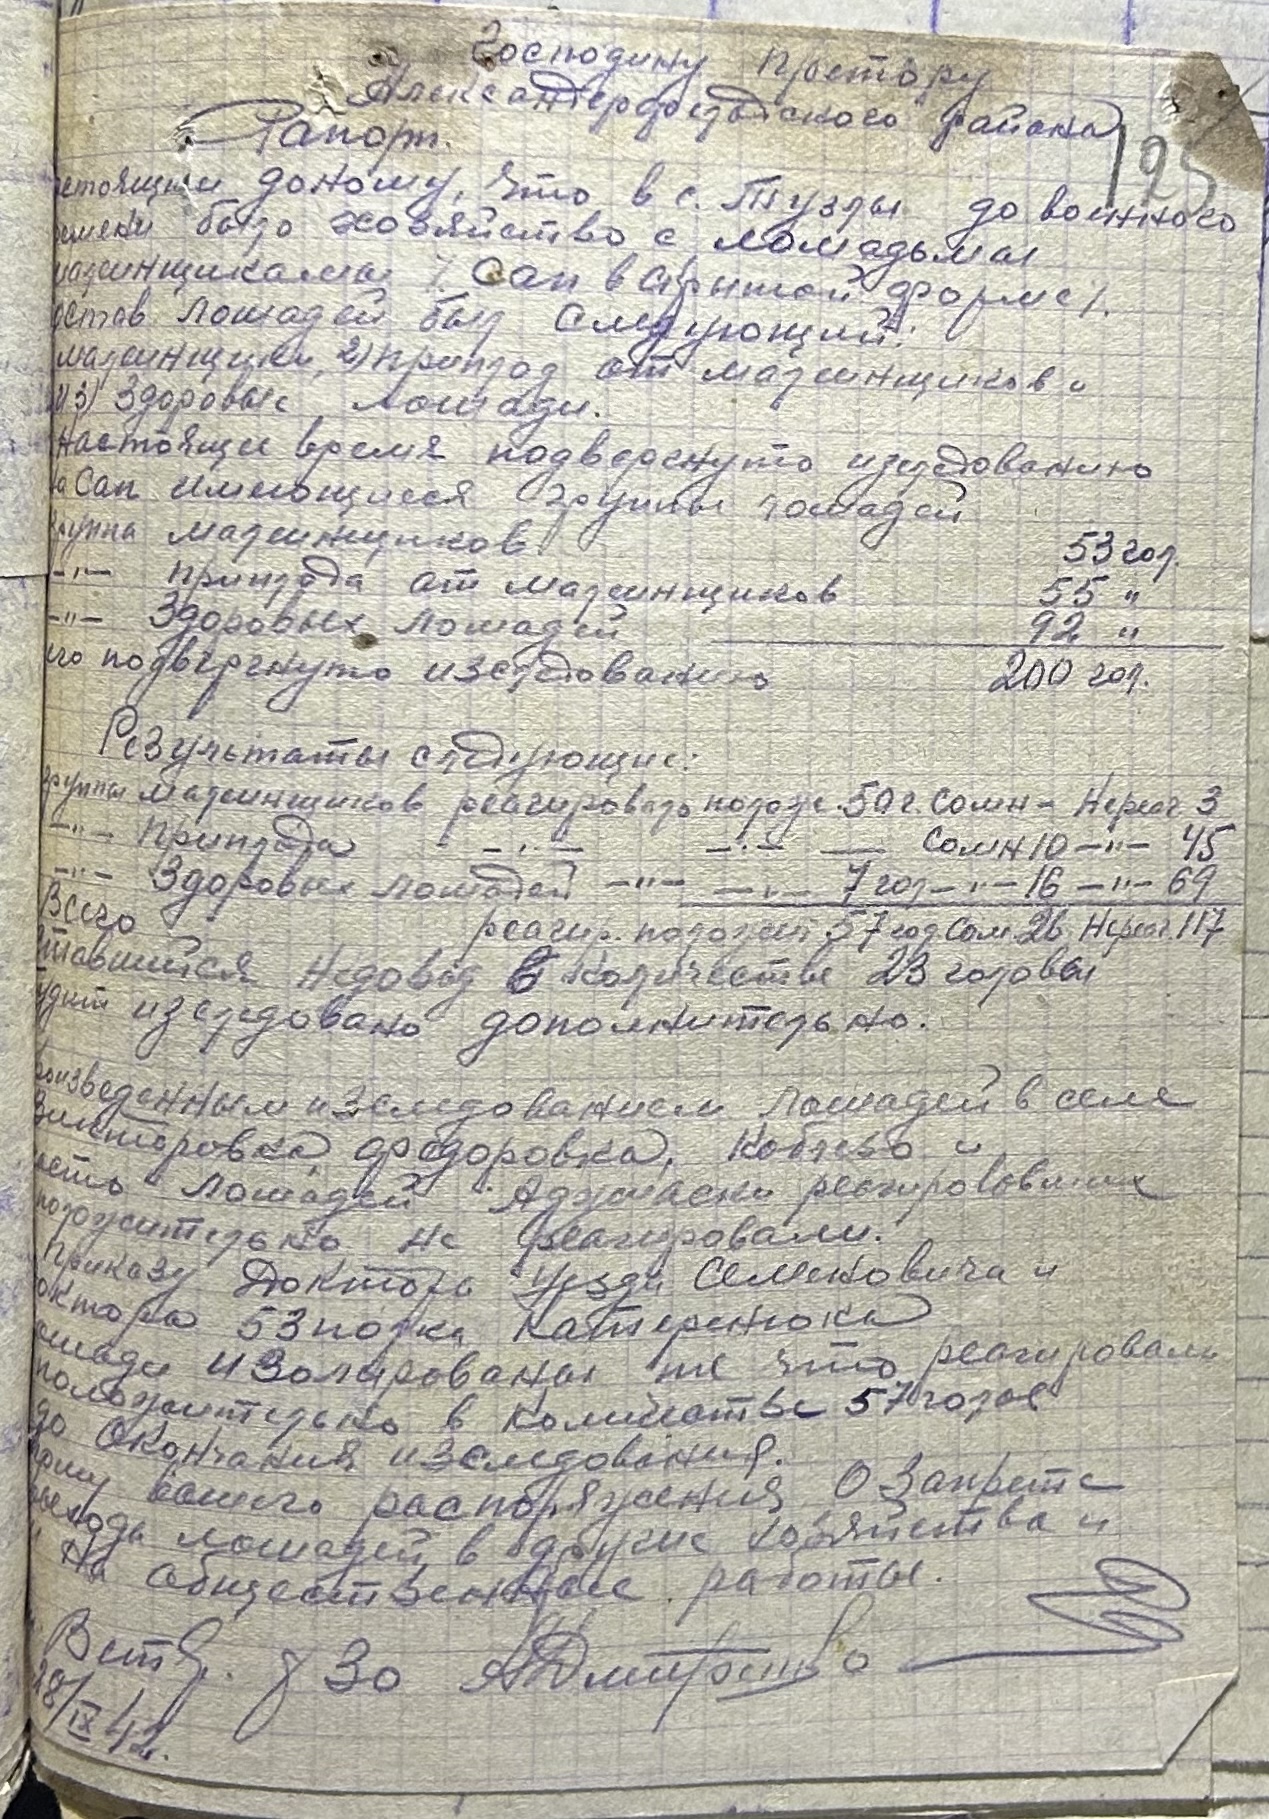 Господину Претору
Александерфельдского района
Рапорт.
125
настоящим доношу, что в с. Тузлы до военного
времени было хозяйство с лошадьми
малеинщиками /Сап в скрытой форме/.
состав лошадей был следующий:
малеинщики, 2) приплод от малеинщиков и
и 3) здоровые лошади.
настоящее время подвергнуто изследованию
на Сап имеющиеся группы лошадей
группа малеинщиков 53 гол.
—"— приплода от малеинщиков 55 "
—"— Здоровых лошадей 92 "
его подвергнуто изследованию 200 гол.
Результаты следующие:
группы малеинщиков реагировало полож. 50 г. Сомн – Нереаг 3
—"— приплода —"— —"— — Сомн 10 —"— 45
—"— Здоровых лошадей —"— —"— 7 гол —"— 16 —"— 69
Всего реагир. положит 57 гол Сом. 26 Нереаг. 117
ставшийся недовод в количестве 23 головы
будет изследовано дополнительно.
произведенным изследованием лошадей в селе
Викторовка, Федоровка, Коблево и
часть лошадей Аджиаски реагировавших
положительно не реагировали.
приказу Доктора Уезда Семеновича и
доктора 53 полка Катеренюка
лошади изолированы те что реагировали
положительно в количестве 57 голов
до окончания изследования.
Прошу вашего распоряжения о запрете
выхода лошадей в другие хозяйства и
на общественные работы.
Вет. у Зо АДмитренко
18/IX 42.